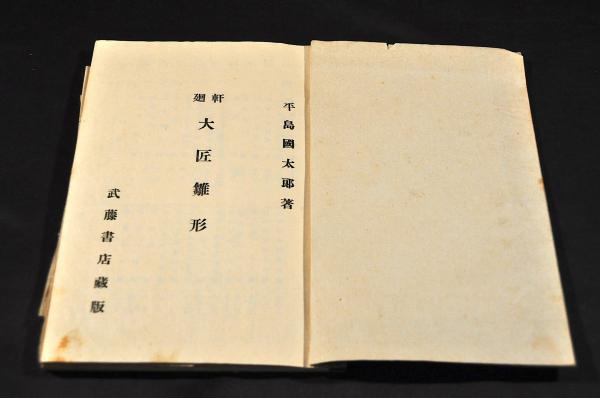 平島國太郎著
軒廻
大匠雛形
武藤書店藏版